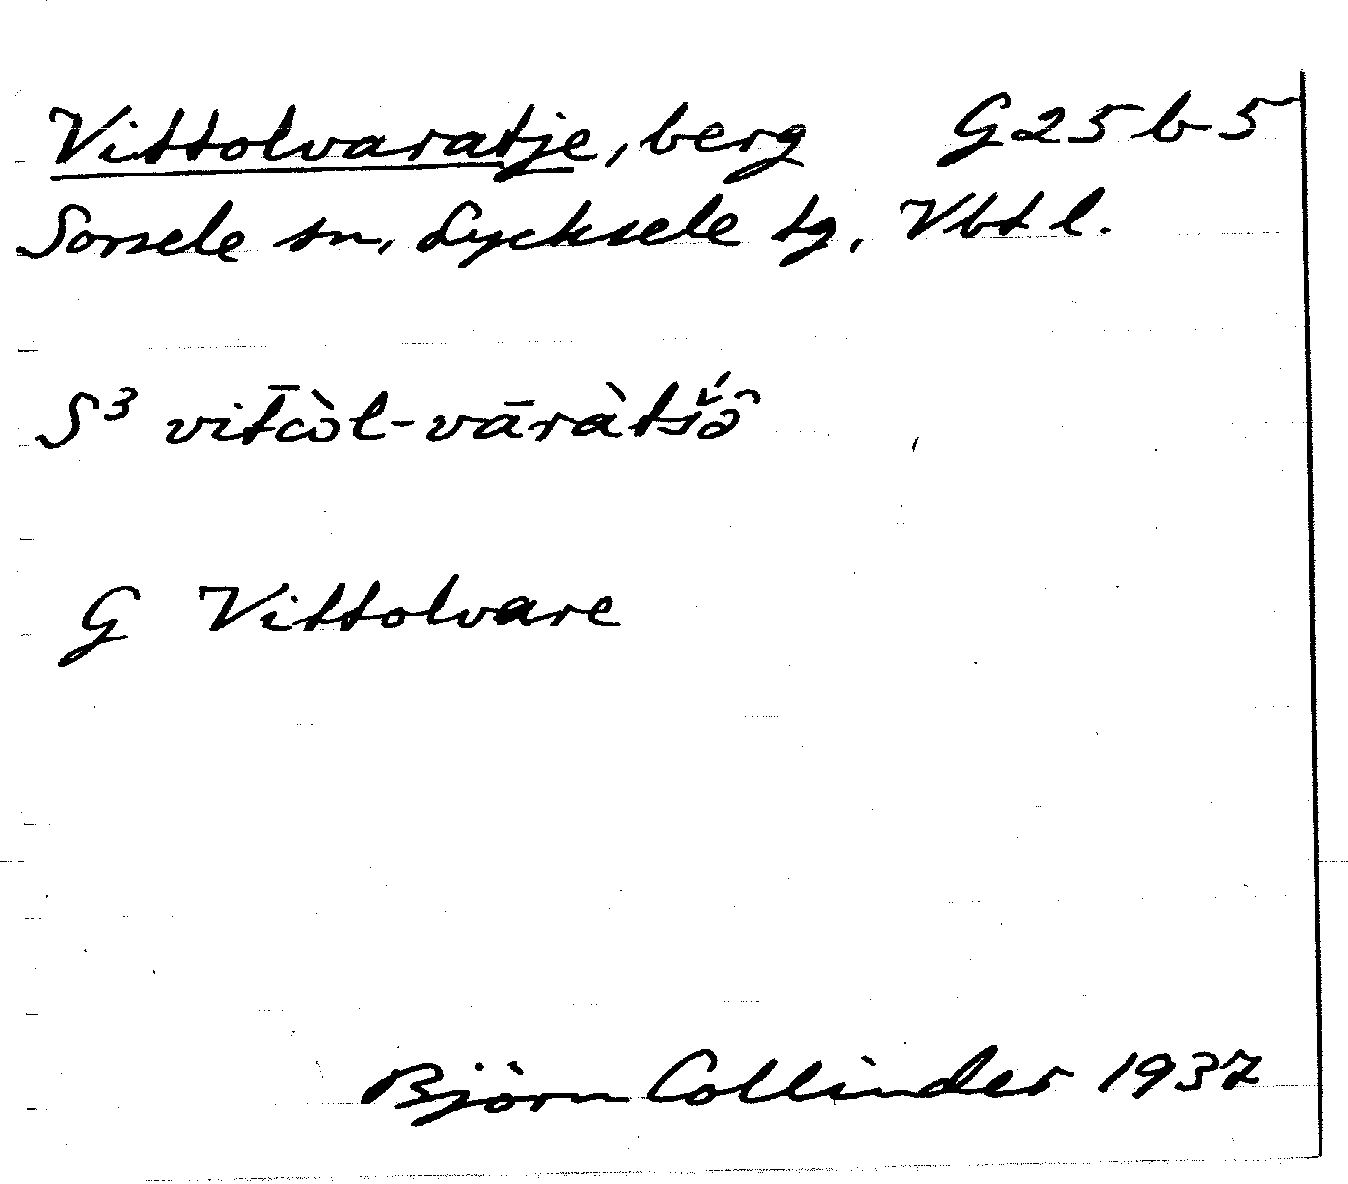 Vittolvaratje, berg G25b5
Sorsele sn, Lycksele tg, Vbtl.
S³ vit̄còl-vāràtš́ə̂
G Vittolvare
Björn Collinder 1937